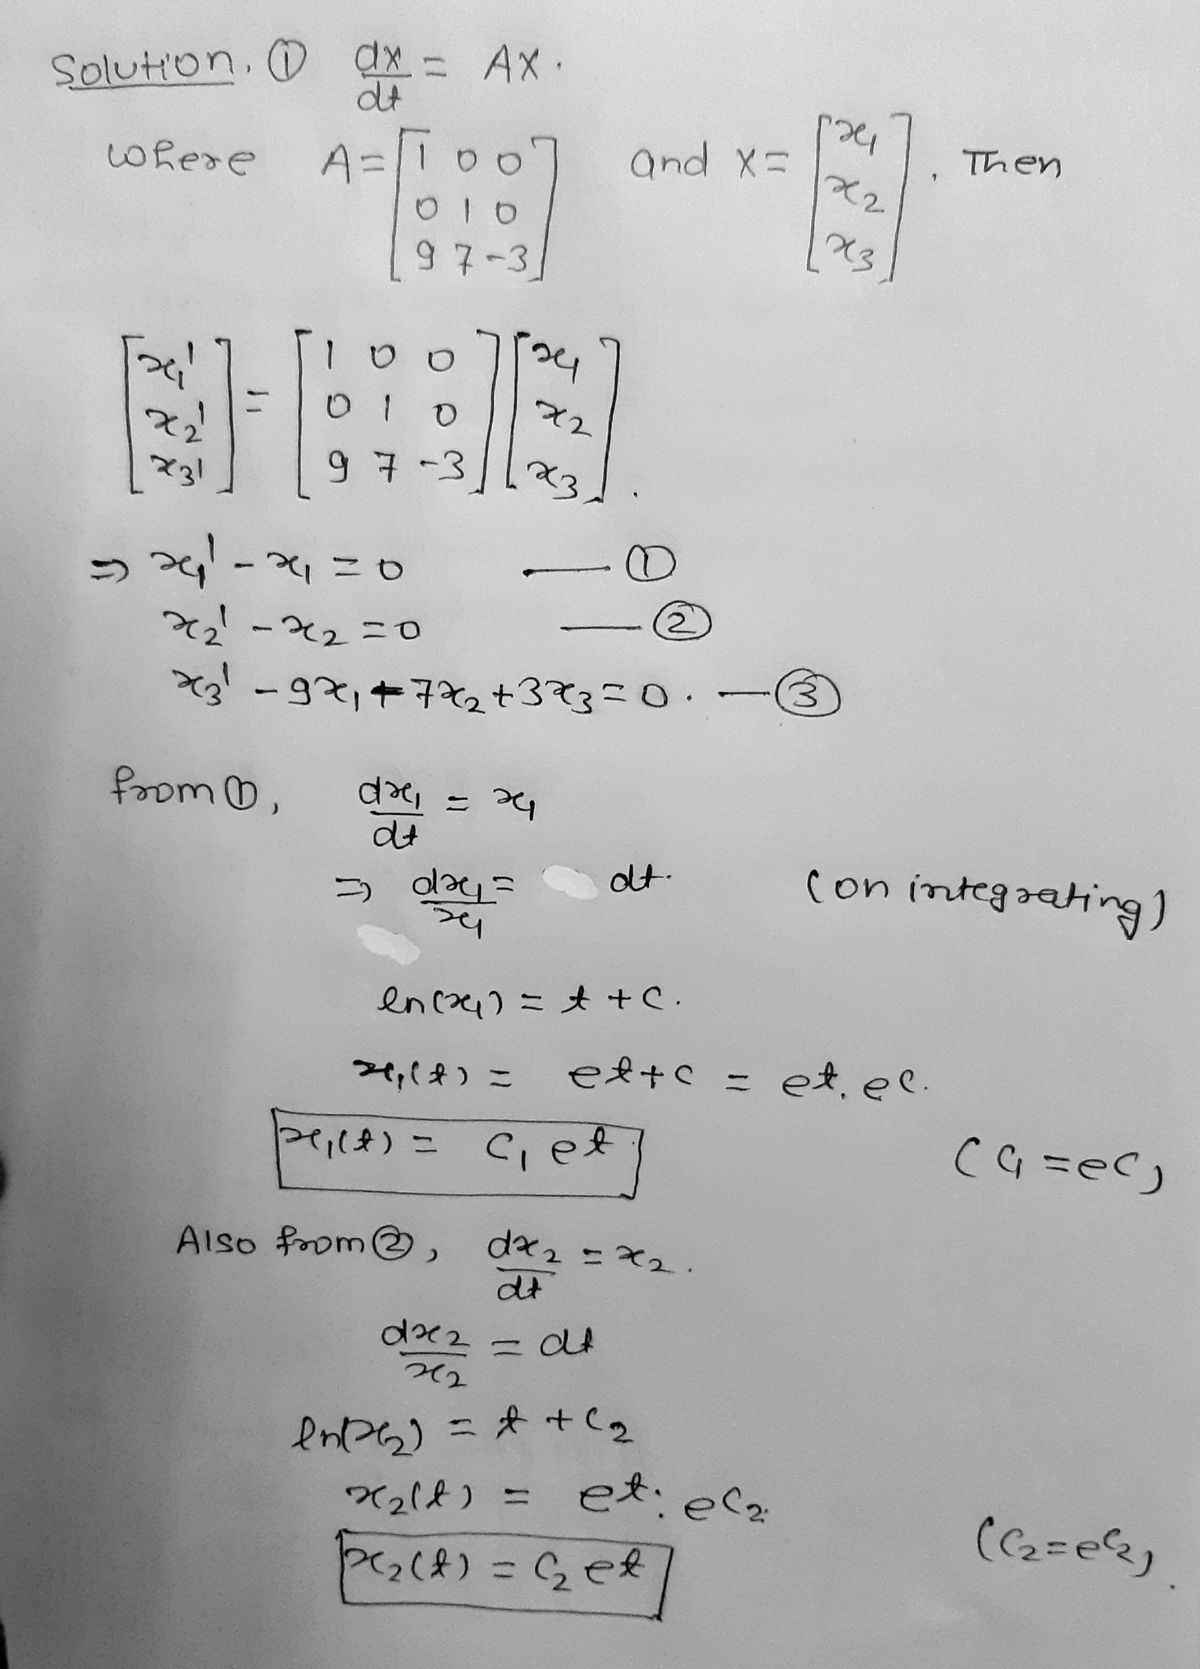 Solution. ① dx/dt = AX.
where A = [1 0 0; 0 1 0; 9 7 -3] and X = [x₁; x₂; x₃]. Then
[x₁'; x₂'; x₃'] = [1 0 0; 0 1 0; 9 7 -3] [x₁; x₂; x₃].
⇒ x₁' - x₁ = 0 — ①
x₂' - x₂ = 0 — ②
x₃' - 9x₁ + 7x₂ + 3x₃ = 0. — ③
from ①, dx₁/dt = x₁
⇒ dx₁/x₁ = dt. (on integrating)
ln(x₁) = t + c.
x₁(t) = e^t+c = e^t. e^c.
x₁(t) = C₁ e^t (C₁ = e^c)
Also from ②, dx₂/dt = x₂.
dx₂/x₂ = dt
ln(x₂) = t + c₂
x₂(t) = e^t. e^c₂.
x₂(t) = C₂ e^t (C₂ = e^c₂).